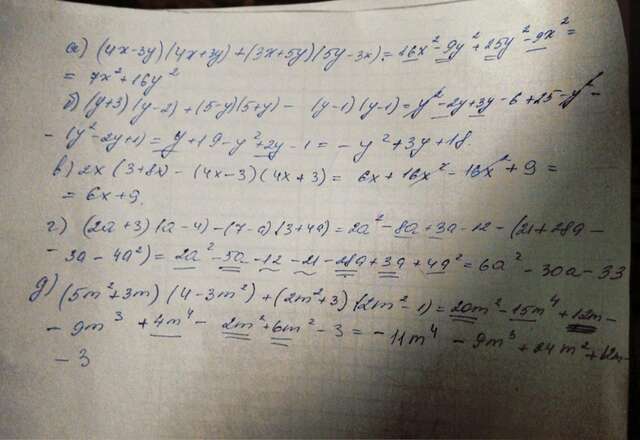 а) (4x-3y)(4x+3y)+(3x+5y)(5y-3x)=16x²-9y²+25y²-9x²=
= 7x²+16y²
б) (y+3)(y-2)+(5-y)(5+y)- (y-1)(y-1)=y²-2y+3y-6+25-y²-
-(y²-2y+1)=y+19-y²+2y-1=-y²+3y+18.
в) 2x(3+8x)-(4x-3)(4x+3)= 6x+16x²-16x²+9=
= 6x+9.
г) (2a+3)(a-4)-(7-a)(3+4a)=2a²-8a+3a-12-(21+28a-
-3a-4a²)=2a²-5a-12-21-28a+3a+4a²=6a²-30a-33
д) (5m²+3m)(4-3m²)+(2m²+3)(2m²-1)=20m²-15m⁴+12m-
-9m³+4m⁴-2m²+6m²-3=-11m⁴-9m³+24m²+12m-
-3